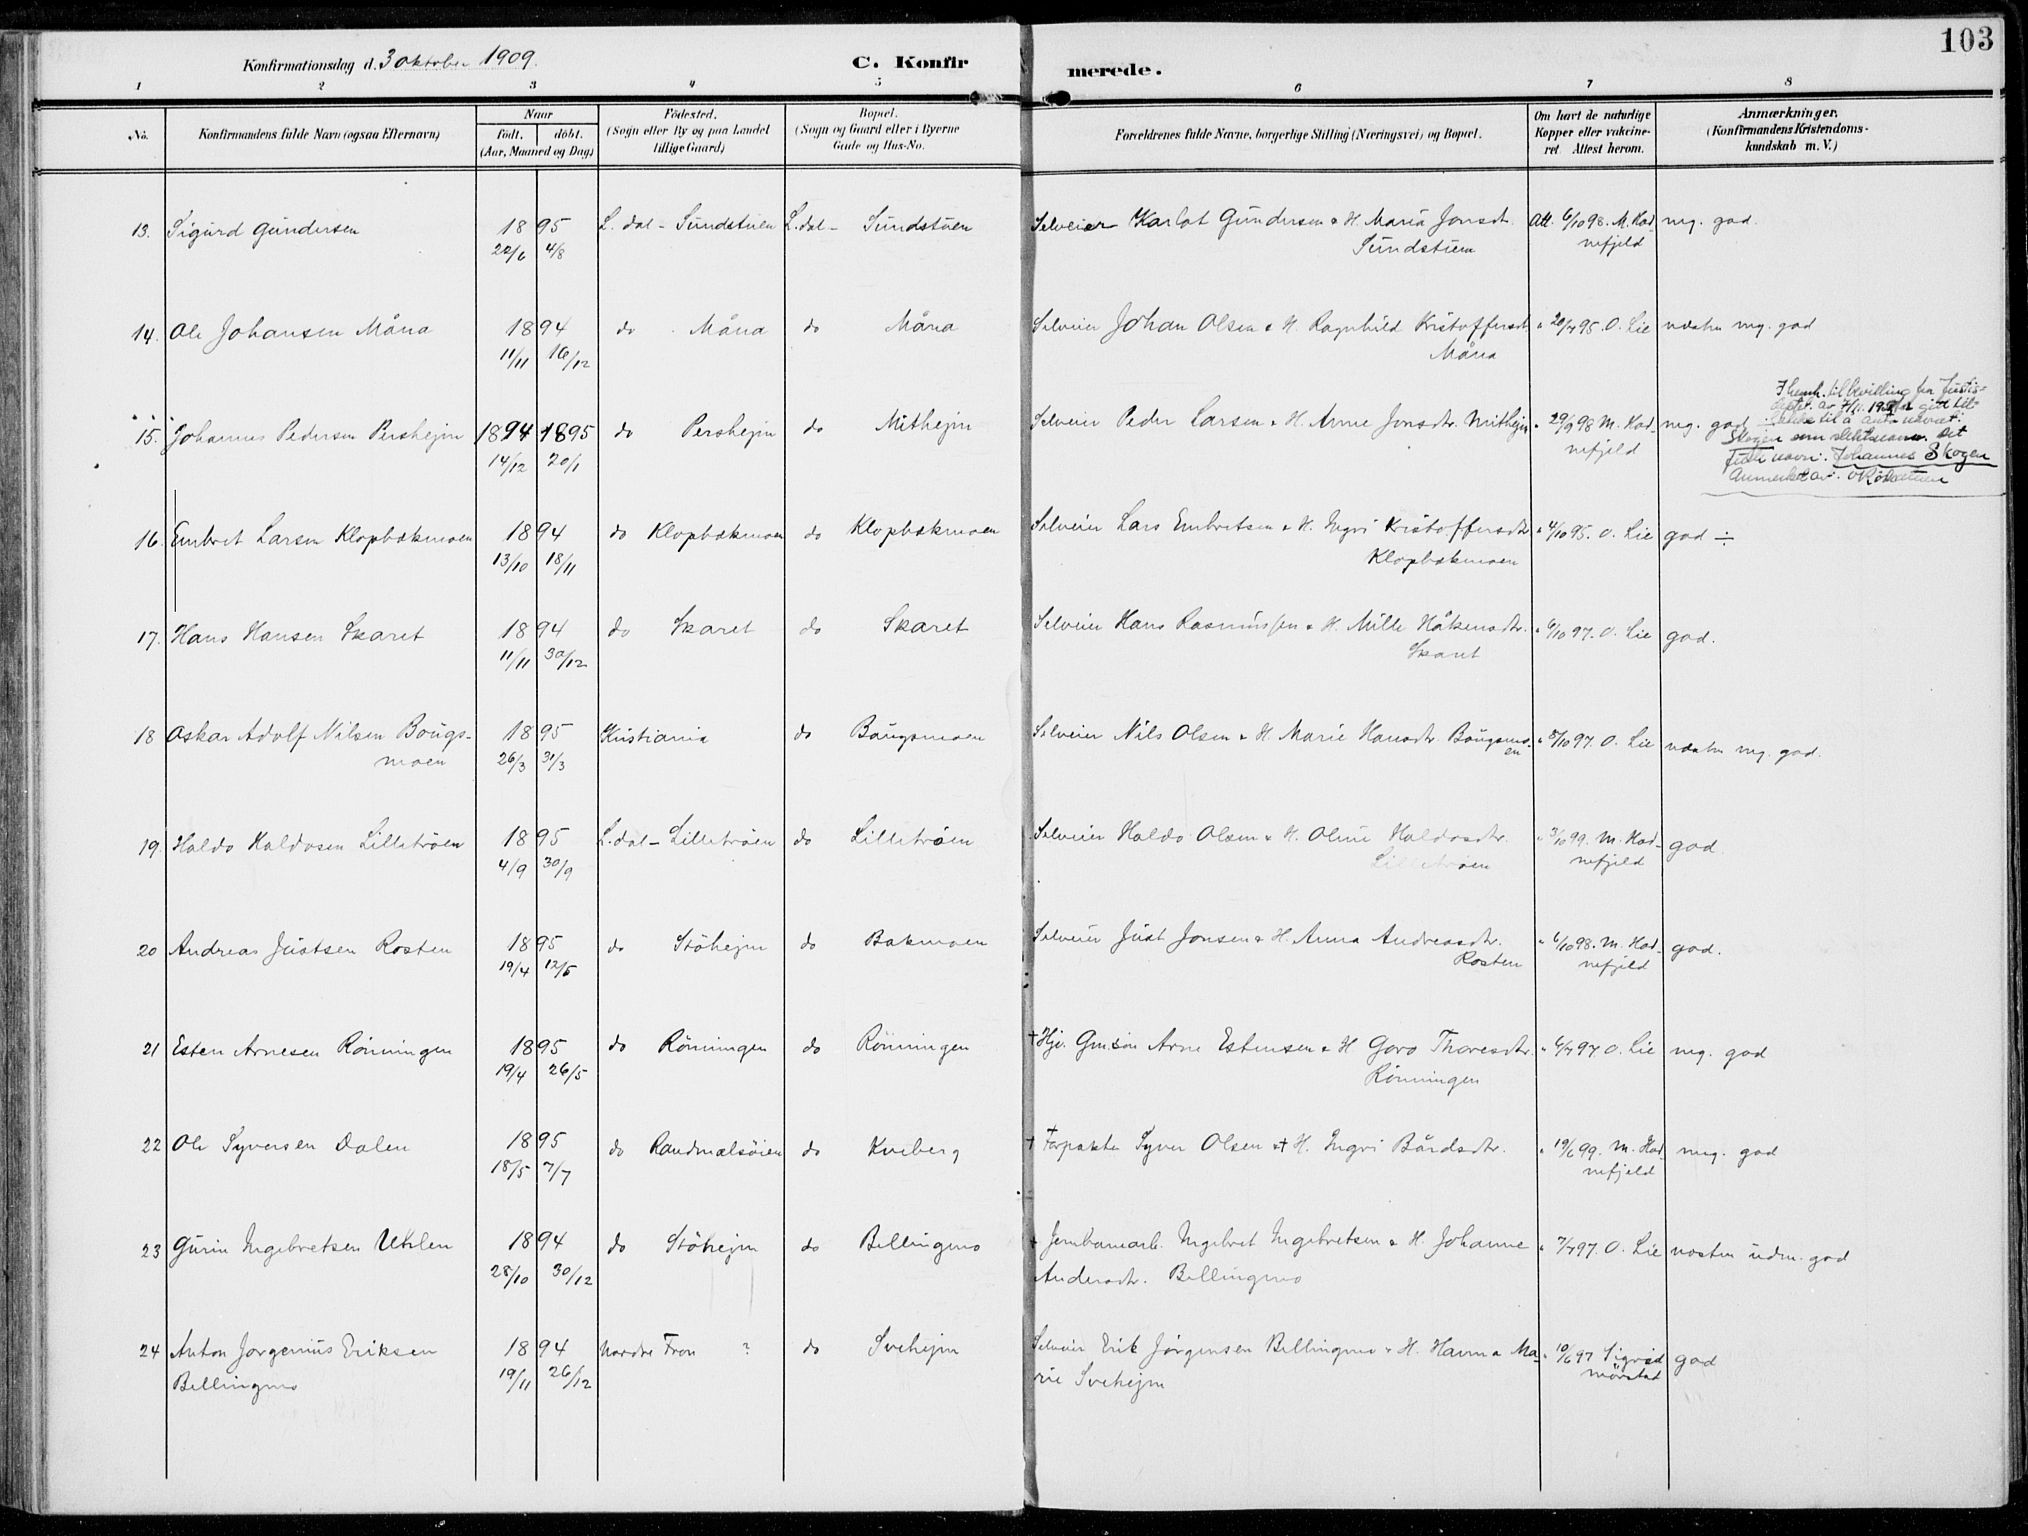 103
Konfirmationsdag d. 3 oktober 1909.
C. Konfirmerede.
1 2 3 4 5 6 7 8
No.
Konfirmandens fulde Navn (ogsaa Efternavn)
Naar
født. døbt.
(Aar, Maaned og Dag)
Födested.
(Sogn eller By og paa Landet
tillige Gaard)
Bopæl.
(Sogn og Gaard eller i Byerne
Gade og Hus-No.
Forældrenes fulde Navne, borgerlige Stilling (Næringsvei) og Bopæl.
Om havt de naturlige
Kopper eller vakcine-
ret. Attest herom.
Anmærkninger.
(Konfirmandens Kristendoms-
kundskab m. V.)
13. Sigurd Gundersen 1895 L. dal - Sundstuen L. dal - Sundstuen Selveier Karlot Gundersen & H. Maria Jonsdt. Att. 6/10 98. M. Kad- mg. god.
22/6 4/8 Sundstuen nefjeld
14. Ole Johansen Måna 1894 do Måna do Måna Selveier Johan Olsen & H. Ragnhild Kristoffersdt. " 20/7 95. O. Lie næsten mg. god
11/11 16/12 Måna
15. Johannes Pedersen Pershejm 1894 1895 do Pershejm do Mithejm Selveier Peder Larsen & H. Anne Jonsdtr. Mithejm " 29/9 98 M. Kad- mg. god
14/12 20/1 nefjeld
I henh. til bevilling fra Justis-
Skogen som slektsnavn. Det
fulde navn: Johannes Skogen
Anmerket av
16. Embret Larsen Klopbækmoen 1894 do Klopbækmoen do Klopbækmoen Selveier Lars Embretsen & H. Ingri Kristoffersdtr. " 4/10 95. O. Lie god ÷
13/10 18/11 Klopbækmoen
17. Hans Hansen Skaret 1894 do Skaret do Skaret Selveier Hans Rasmussen & H. Mille Håkensdtr. " 6/10 97. O. Lie god.
11/11 30/12 Skaret
18 Oskar Adolf Nilsen Bougs- 1895 Kristiania do Bougsmoen Selveier Nils Olsen & H. Marie Hansdtr. Bougsmo- " 8/10 97. O. Lie næsten mg. god.
moen 26/3 31/3 en
19. Haldo Haldosen Lilletröen 1895 L. dal - Lilletröen do Lilletröen Selveier Haldo Olsen & H. Oline Haldosdtr. " 3/10 99. M. Kad- god.
4/9 30/9 Lilletröen nefjeld
20 Andreas Justsen Rosten 1895 do Stöhejm do Bakmoen Selveier Just Jonsen & H. Anna Andreasdtr. " 6/10 98. M. Kad- god.
19/4 12/5 Rosten nefjeld
21 Esten Arnesen Rönningen 1895 do Rönningen do Rönningen + Hjv. Gmsön Arne Estensen & H Goro Thoresdtr. " 6/7 97 O. Lie mg. god
19/4 26/5 Rönningen
22 Ole Syversen Dalen 1895 do Randmælsöien do Kveberg + Forpakter Syver Olsen & + H. Ingri Bårdsdtr. " 19/6 99. M. Kad- mg. god
18/5 7/7 nefjeld
23 Gurin Ingebretsen Uhlen 1894 do Stöhejm do Bellingmo + Jernbanearb. Ingebret Ingebretsen & H. Johanne " 7/7 97. O. Lie næsten udm. god
28/10 30/12 Andersdtr. Bellingmo
24 Anton Jorgenius Eriksen 1894 Nordre Fron ? do Svehejm Selveier Erik Jörgensen Bellingmo & H. Hanna Ma- " 10/6 97 Sigrid god
Bellingmo 19/11 26/12 rie Svehejm Mörstad